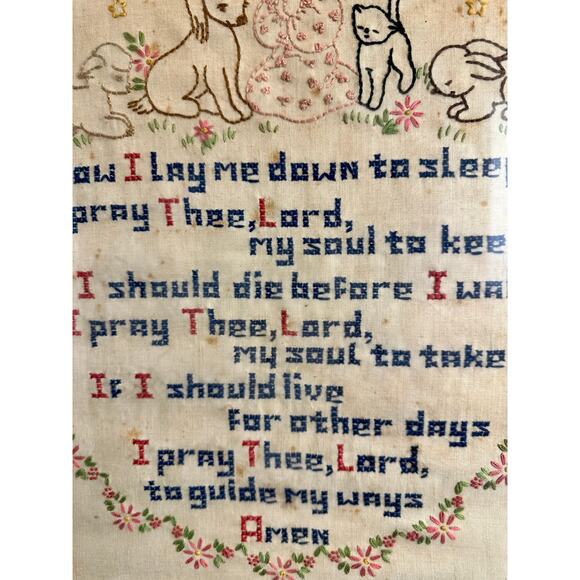 ow I lay me down to sleep
pray Thee, Lord,
my soul to kee
I should die before I wa
I pray Thee, Lord,
my soul to take
If I should live
for other days
I pray Thee, Lord,
to guide my ways
Amen